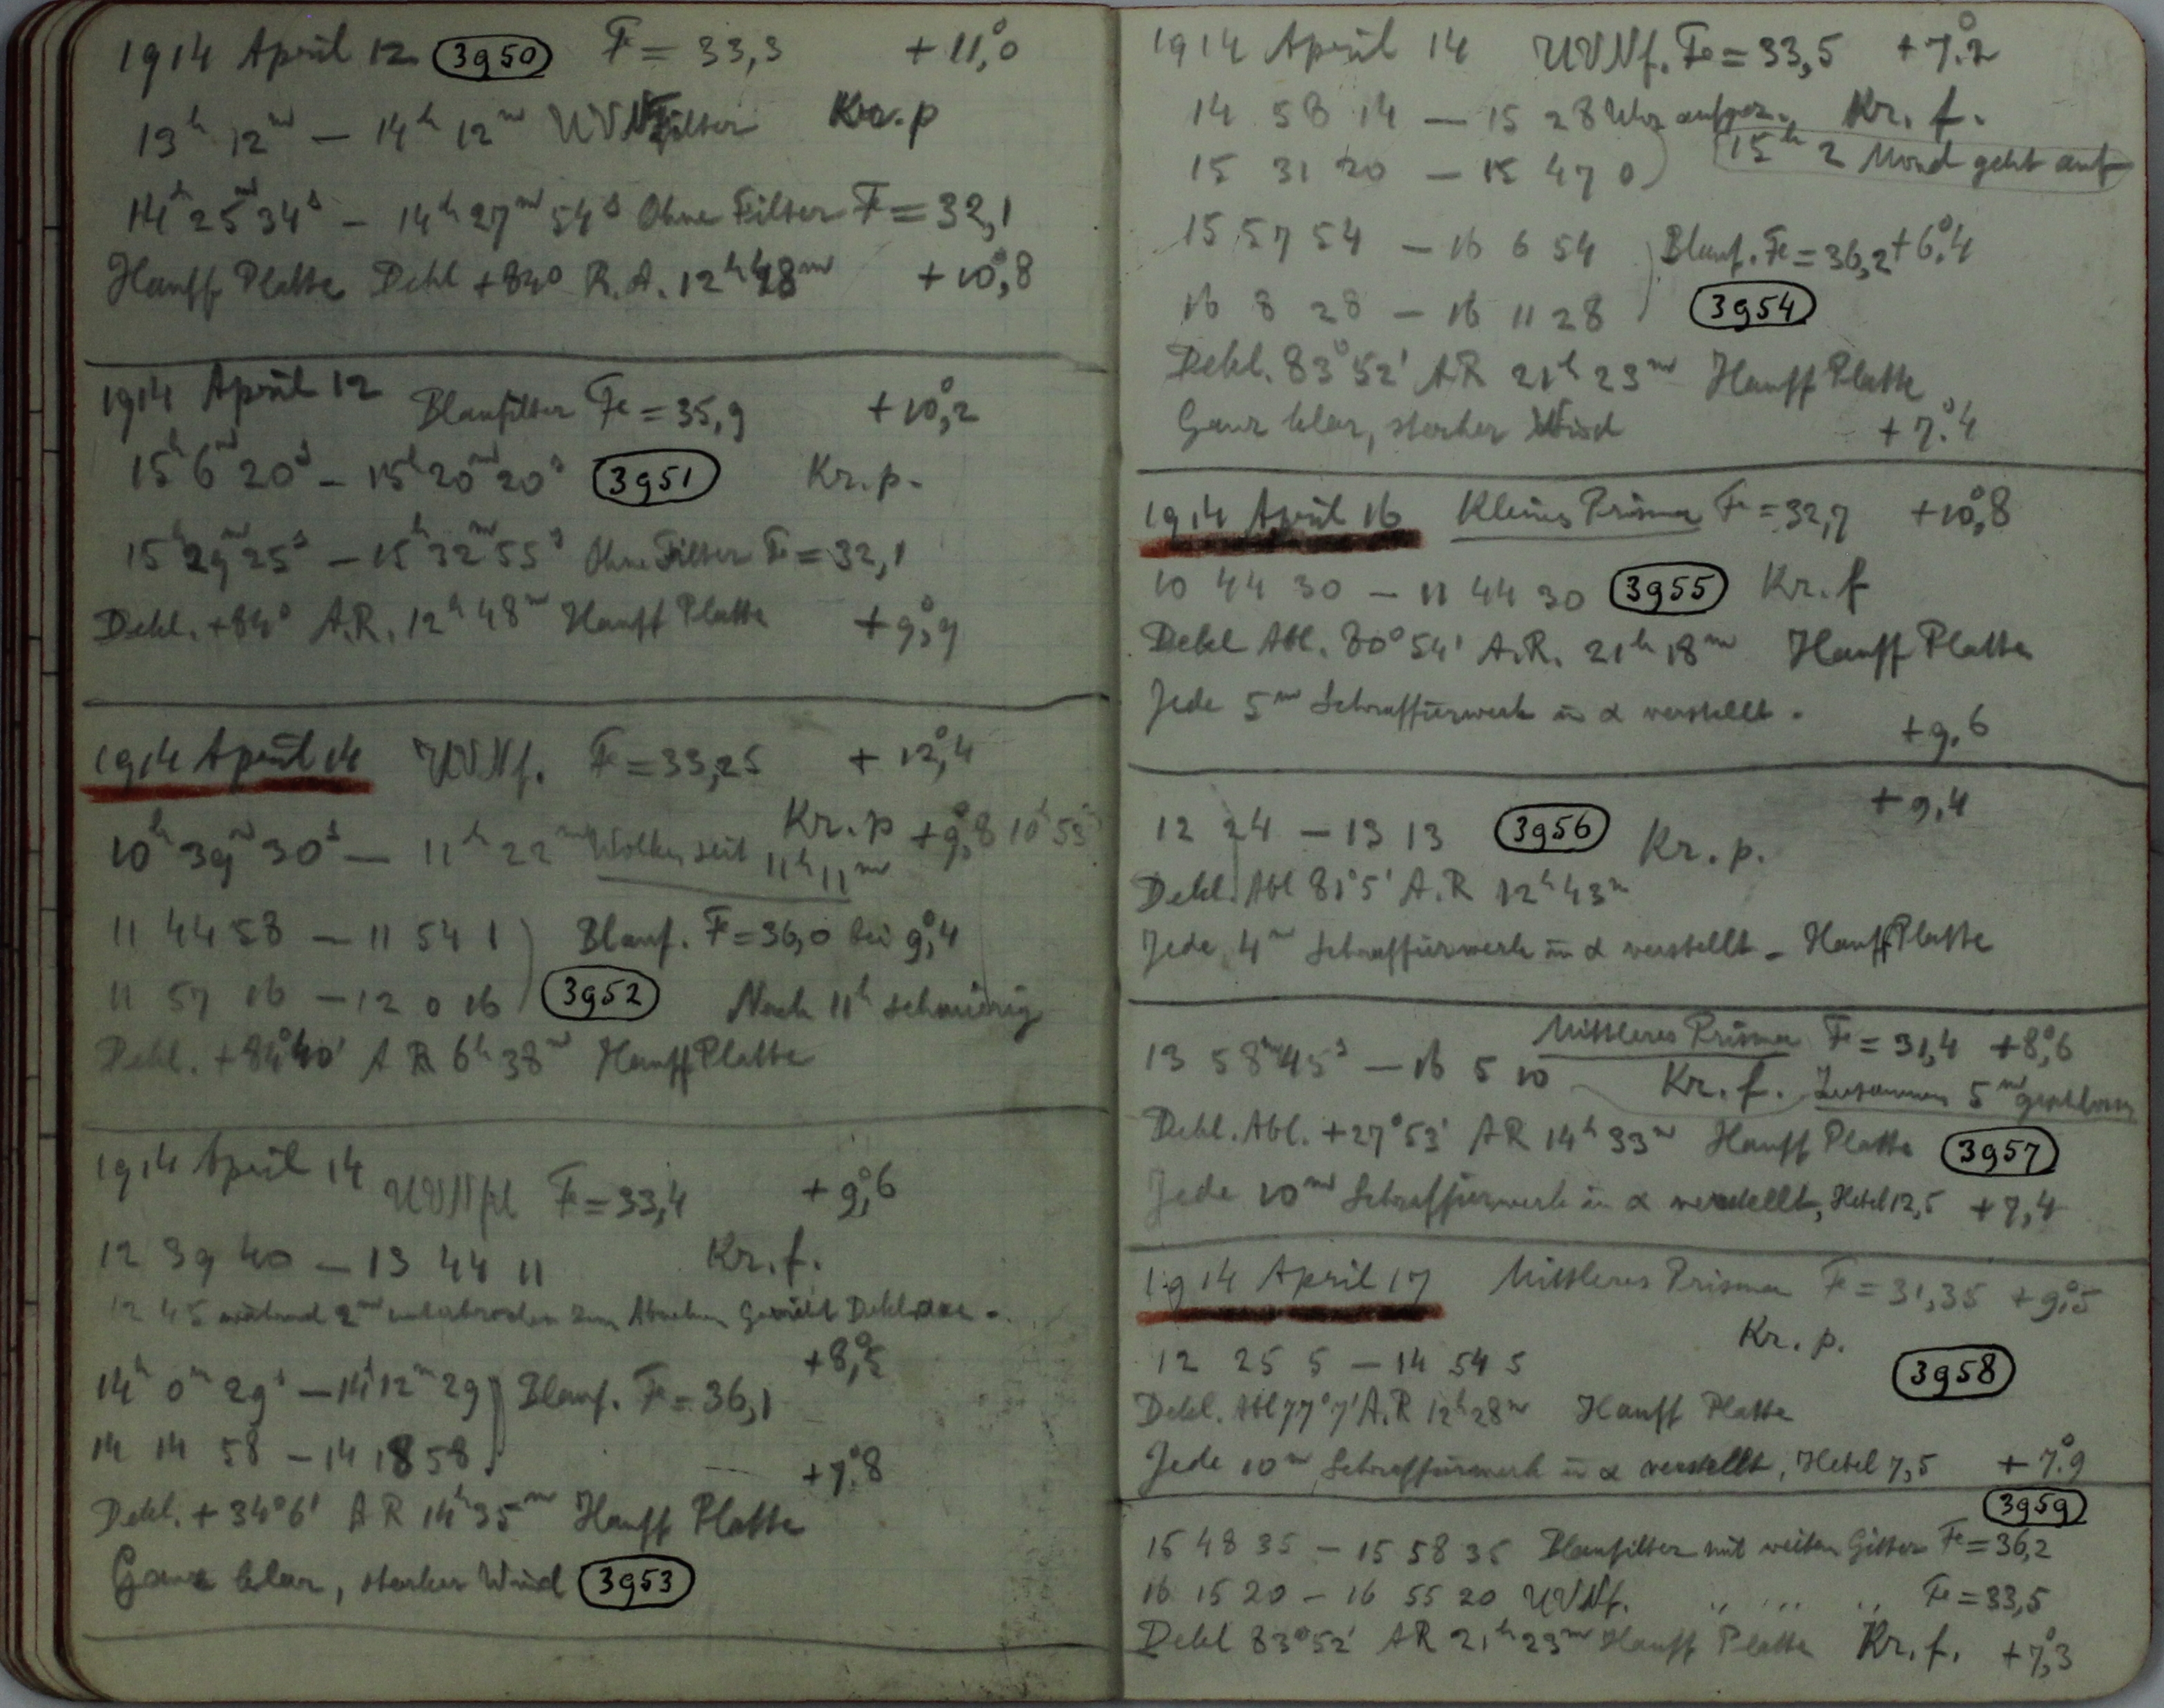 1914 April 12 3950 F = 33,3 +11,°0
13h 12m — 14h 12m UVNfilter Kr. p
14h 25m 34s — 14h 27m 54s Ohne Filter F = 32,1
Hauff Platte Dekl +84° R.A. 12h 48m +10,°8
1914 April 12 Blaufilter Fe = 35,9 +10,°2
15h 6m 20s — 15h 20m 20s 3951 Kr. p.
15h 29m 25s — 15h 32m 55s Ohne Filter F = 32,1
Dekl. +84° A.R. 12h 48m Hauff Platte +9,°9
1914 April 14 UVNf. F = 33,25 +12,°4
10h 39m 30s — 11h 22m Wolken seit 11h 11m Kr. p +9,°8 10h 53
11 44 58 — 11 54 1 Blauf. F = 36,0 bei 9,°4
11 57 16 — 12 0 16 3952 Nach 11h schmierig
Dekl. +84°40' AR 6h 38m Hauff Platte
1914 April 14 F = 33,4 +9,°6
12 39 40 — 13 44 11 Kr. f.
12 45 während 2m unterbrochen zum
14h 0m 29s — 14h 12m 29 Blauf. F = 36,1 +8,°5
14 14 58 — 14 18 58 +7.°8
Dekl. +34°6' AR 14h 35m Hauff Platte
Ganz klar, starker Wind 3953
1914 April 14 UVNf. Fe = 33,5 +7.°2
14 58 14 — 15 28 Uhr aufgez. Kr. f.
15 31 20 — 15 47 0 15h 2 Mond geht auf
15 57 54 — 16 6 54 Blauf. Fe = 36,2 +6,°4
16 8 28 — 16 11 28 3954
Dekl. 83°52' AR 21h 23m Hauff Platte
Ganz klar, starker Wind +7.°4
1914 April 16 Kleines Prisma F = 32,7 +10,°8
10 44 30 — 11 44 30 3955 Kr. f
Dekl Abl. 80°54' A.R. 21h 18m Hauff Platte
Jede 5m Schraffierwerk in α verstellt. +9,6
12 24 — 13 13 3956 Kr. p. +9,4
Dekl. Abl 81°5' A.R 12h 43m
Jede 4m Schraffierwerk in α verstellt – Hauff Platte
Mittleres Prisma F = 31,4 +8,°6
13 58m 45s — 16 5 10 Kr. f. Zusammen 5m geschlossen
Dekl. Abl. +27°53' AR 14h 33m Hauff Platte 3957
Jede 10m Schraffierwerk in α verstellt, Hebel 12,5 +7,4
1914 April 17 Mittleres Prisma F = 31,35 +9,°5
12 25 5 — 14 54 5 Kr. p. 3958
Dekl. Abl 77°7' A.R 12h 28m Hauff Platte
Jede 10m Schraffierwerk in α verstellt, Hebel 7,5 +7.°9
3959
15 48 35 — 15 58 35 Blaufilter mit weiten Gitter Fe = 36,2
16 15 20 — 16 55 20 UVNf. " " " Fe = 33,5
Dekl 83°52' AR 21h 23m Hauff Platte Kr. f. +7,°3